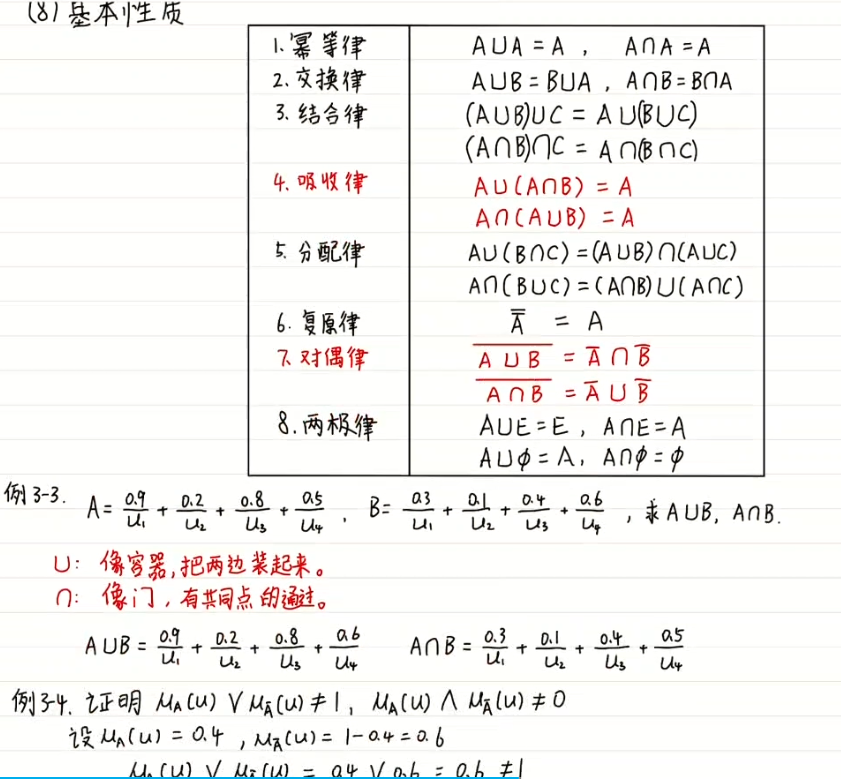 (8) 基本性质
1. 幂等律 A∪A = A , A∩A = A
2. 交换律 A∪B = B∪A , A∩B = B∩A
3. 结合律 (A∪B)∪C = A∪(B∪C)
(A∩B)∩C = A∩(B∩C)
4. 吸收律 A∪(A∩B) = A
A∩(A∪B) = A
5. 分配律 A∪(B∩C) = (A∪B)∩(A∪C)
A∩(B∪C) = (A∩B)∪(A∩C)
6. 复原律 A̿ = A
7. 对偶律 \overline{A∪B} = \overline{A} ∩ \overline{B}
\overline{A∩B} = \overline{A} ∪ \overline{B}
8. 两极律 A∪E = E , A∩E = A
A∪φ = A , A∩φ = φ
例3-3. A = 0.9/u₁ + 0.2/u₂ + 0.8/u₃ + 0.5/u₄ , B = 0.3/u₁ + 0.1/u₂ + 0.4/u₃ + 0.6/u₄ , 求A∪B, A∩B.
∪: 像容器,把两边装起来。
∩: 像门,有共同点的通过。
A∪B = 0.9/u₁ + 0.2/u₂ + 0.8/u₃ + 0.6/u₄ A∩B = 0.3/u₁ + 0.1/u₂ + 0.4/u₃ + 0.5/u₄
例3-4. 证明 μ_A(u) ∨ μ_Ā(u) ≠ 1, μ_A(u) ∧ μ_Ā(u) ≠ 0
设 μ_A(u) = 0.4 , μ_Ā(u) = 1-0.4 = 0.6
μ_A(u) ∨ μ_Ā(u) = 0.4 ∨ 0.6 = 0.6 ≠ 1